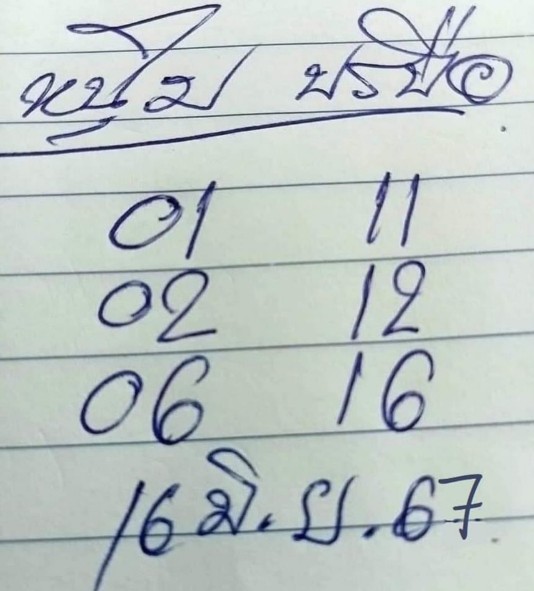 หนุ่ม บรบือ
01 11
02 12
06 16
16 มิ.ย.67